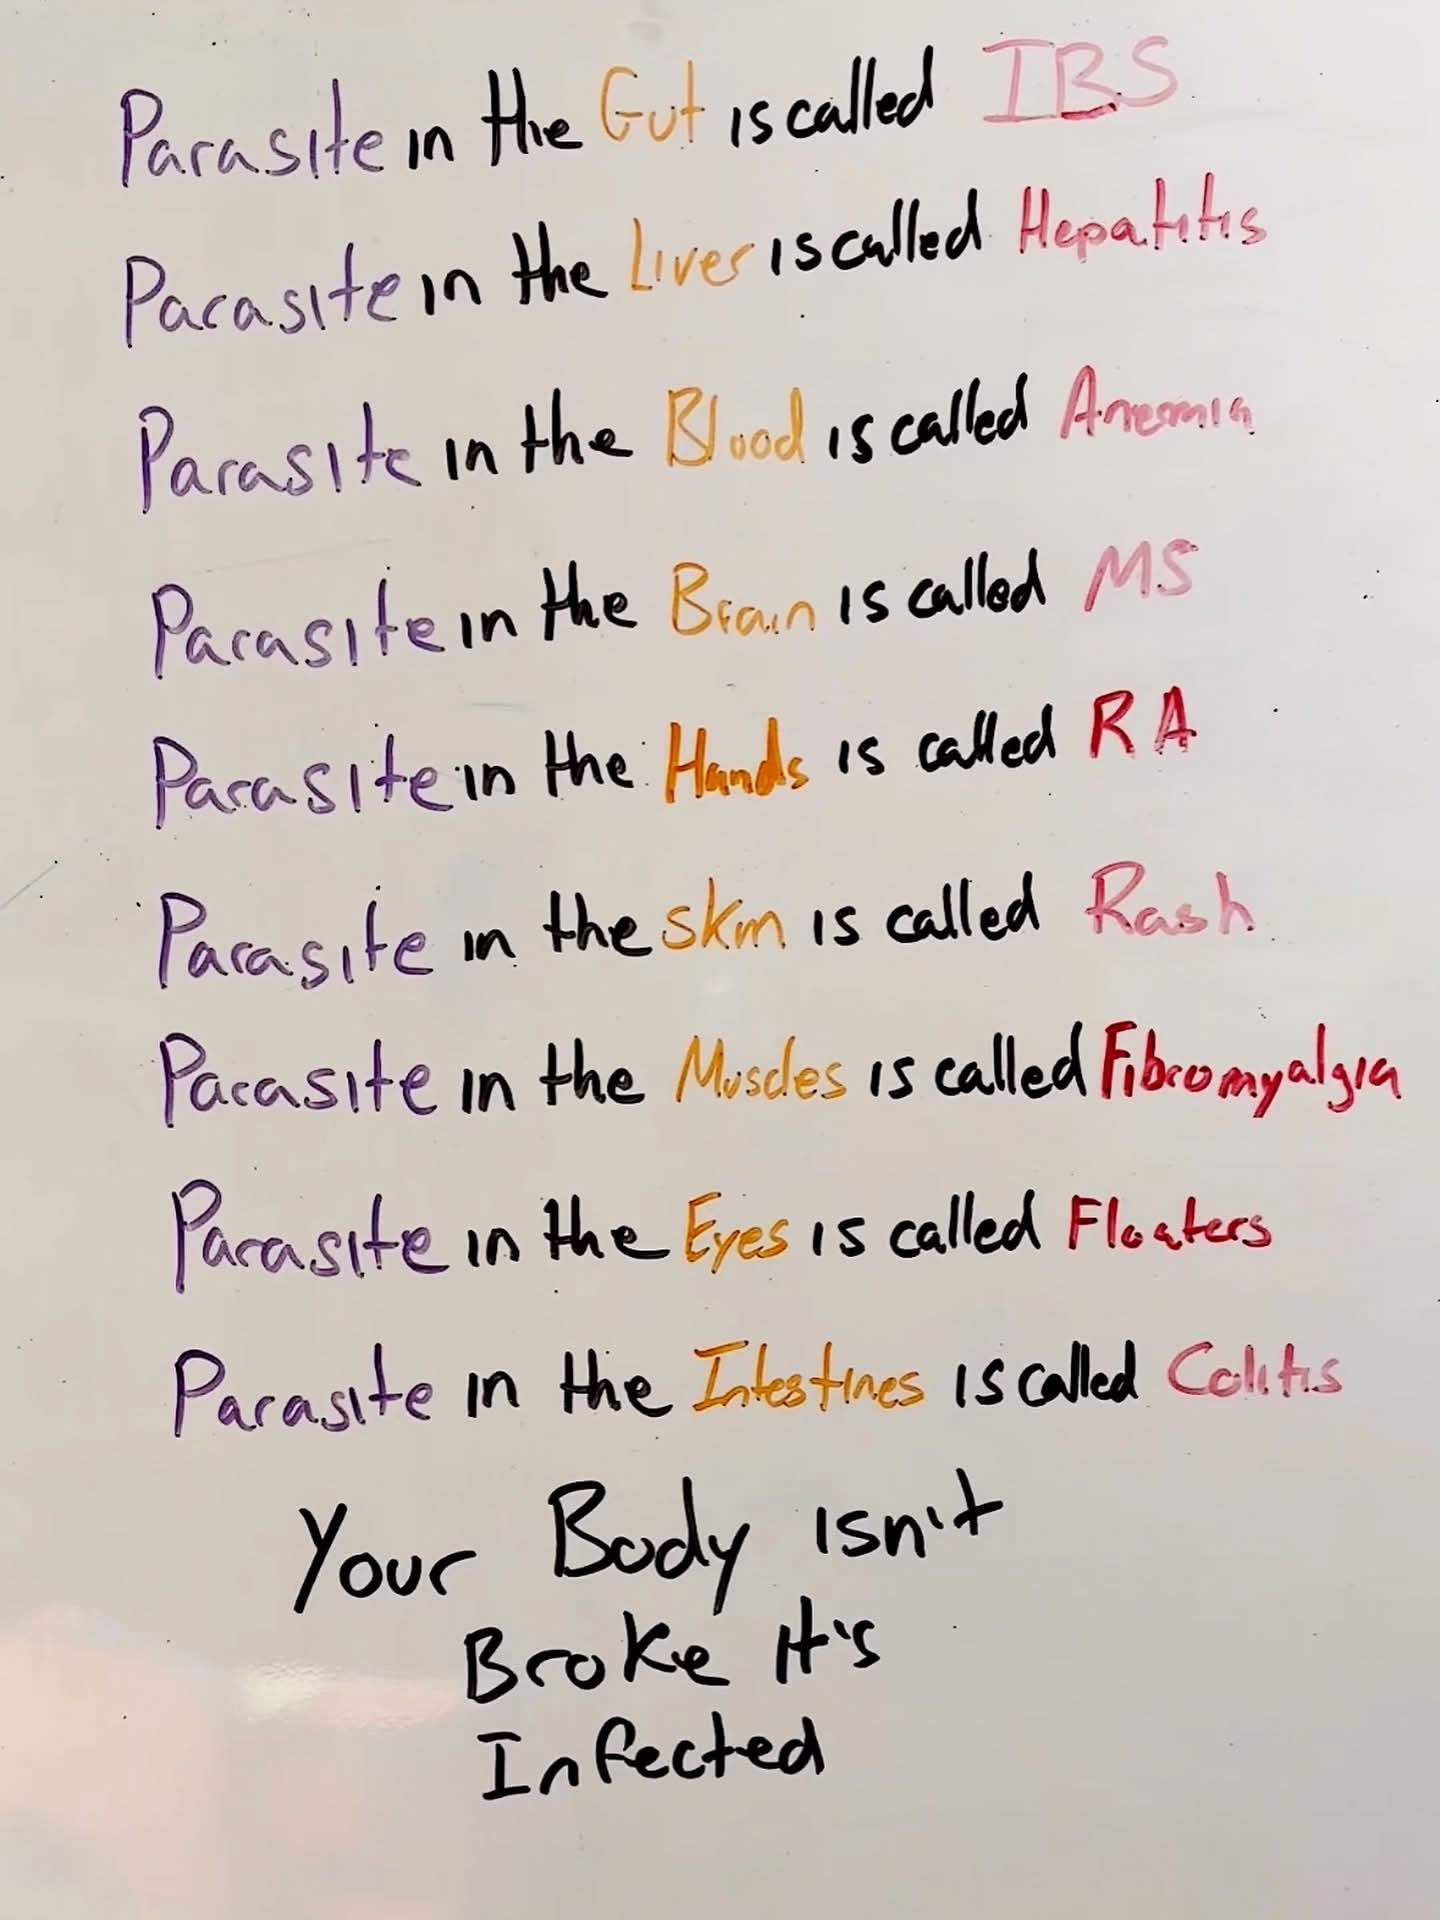 Parasite in the Gut is called IBS
Parasite in the Liver is called Hepatitis
Parasite in the Blood is called Anemia
Parasite in the Brain is called MS
Parasite in the Hands is called RA
Parasite in the Skin is called Rash
Parasite in the Muscles is called Fibromyalgia
Parasite in the Eyes is called Floaters
Parasite in the Intestines is called Colitis
Your Body isn't
Broke It's
Infected